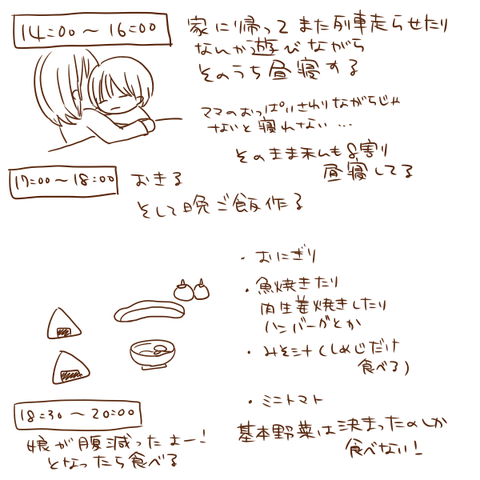 14:00～16:00
家に帰ってまた列車走らせたり
なんか遊びながら
そのうち昼寝する
ママのおっぱいさわりながらじゃ
ないと寝れない…
そのまま私も8割り
昼寝してる
17:00～18:00
おきる
そして晩ご飯作る
・おにぎり
・魚焼きたり
肉生姜焼きしたり
ハンバーグとか
・みそ汁(しめじだけ
食べる)
・ミニトマト
基本野菜は決まったのしか
食べない!
18:30～20:00
娘が腹減ったよー!
となったら食べる